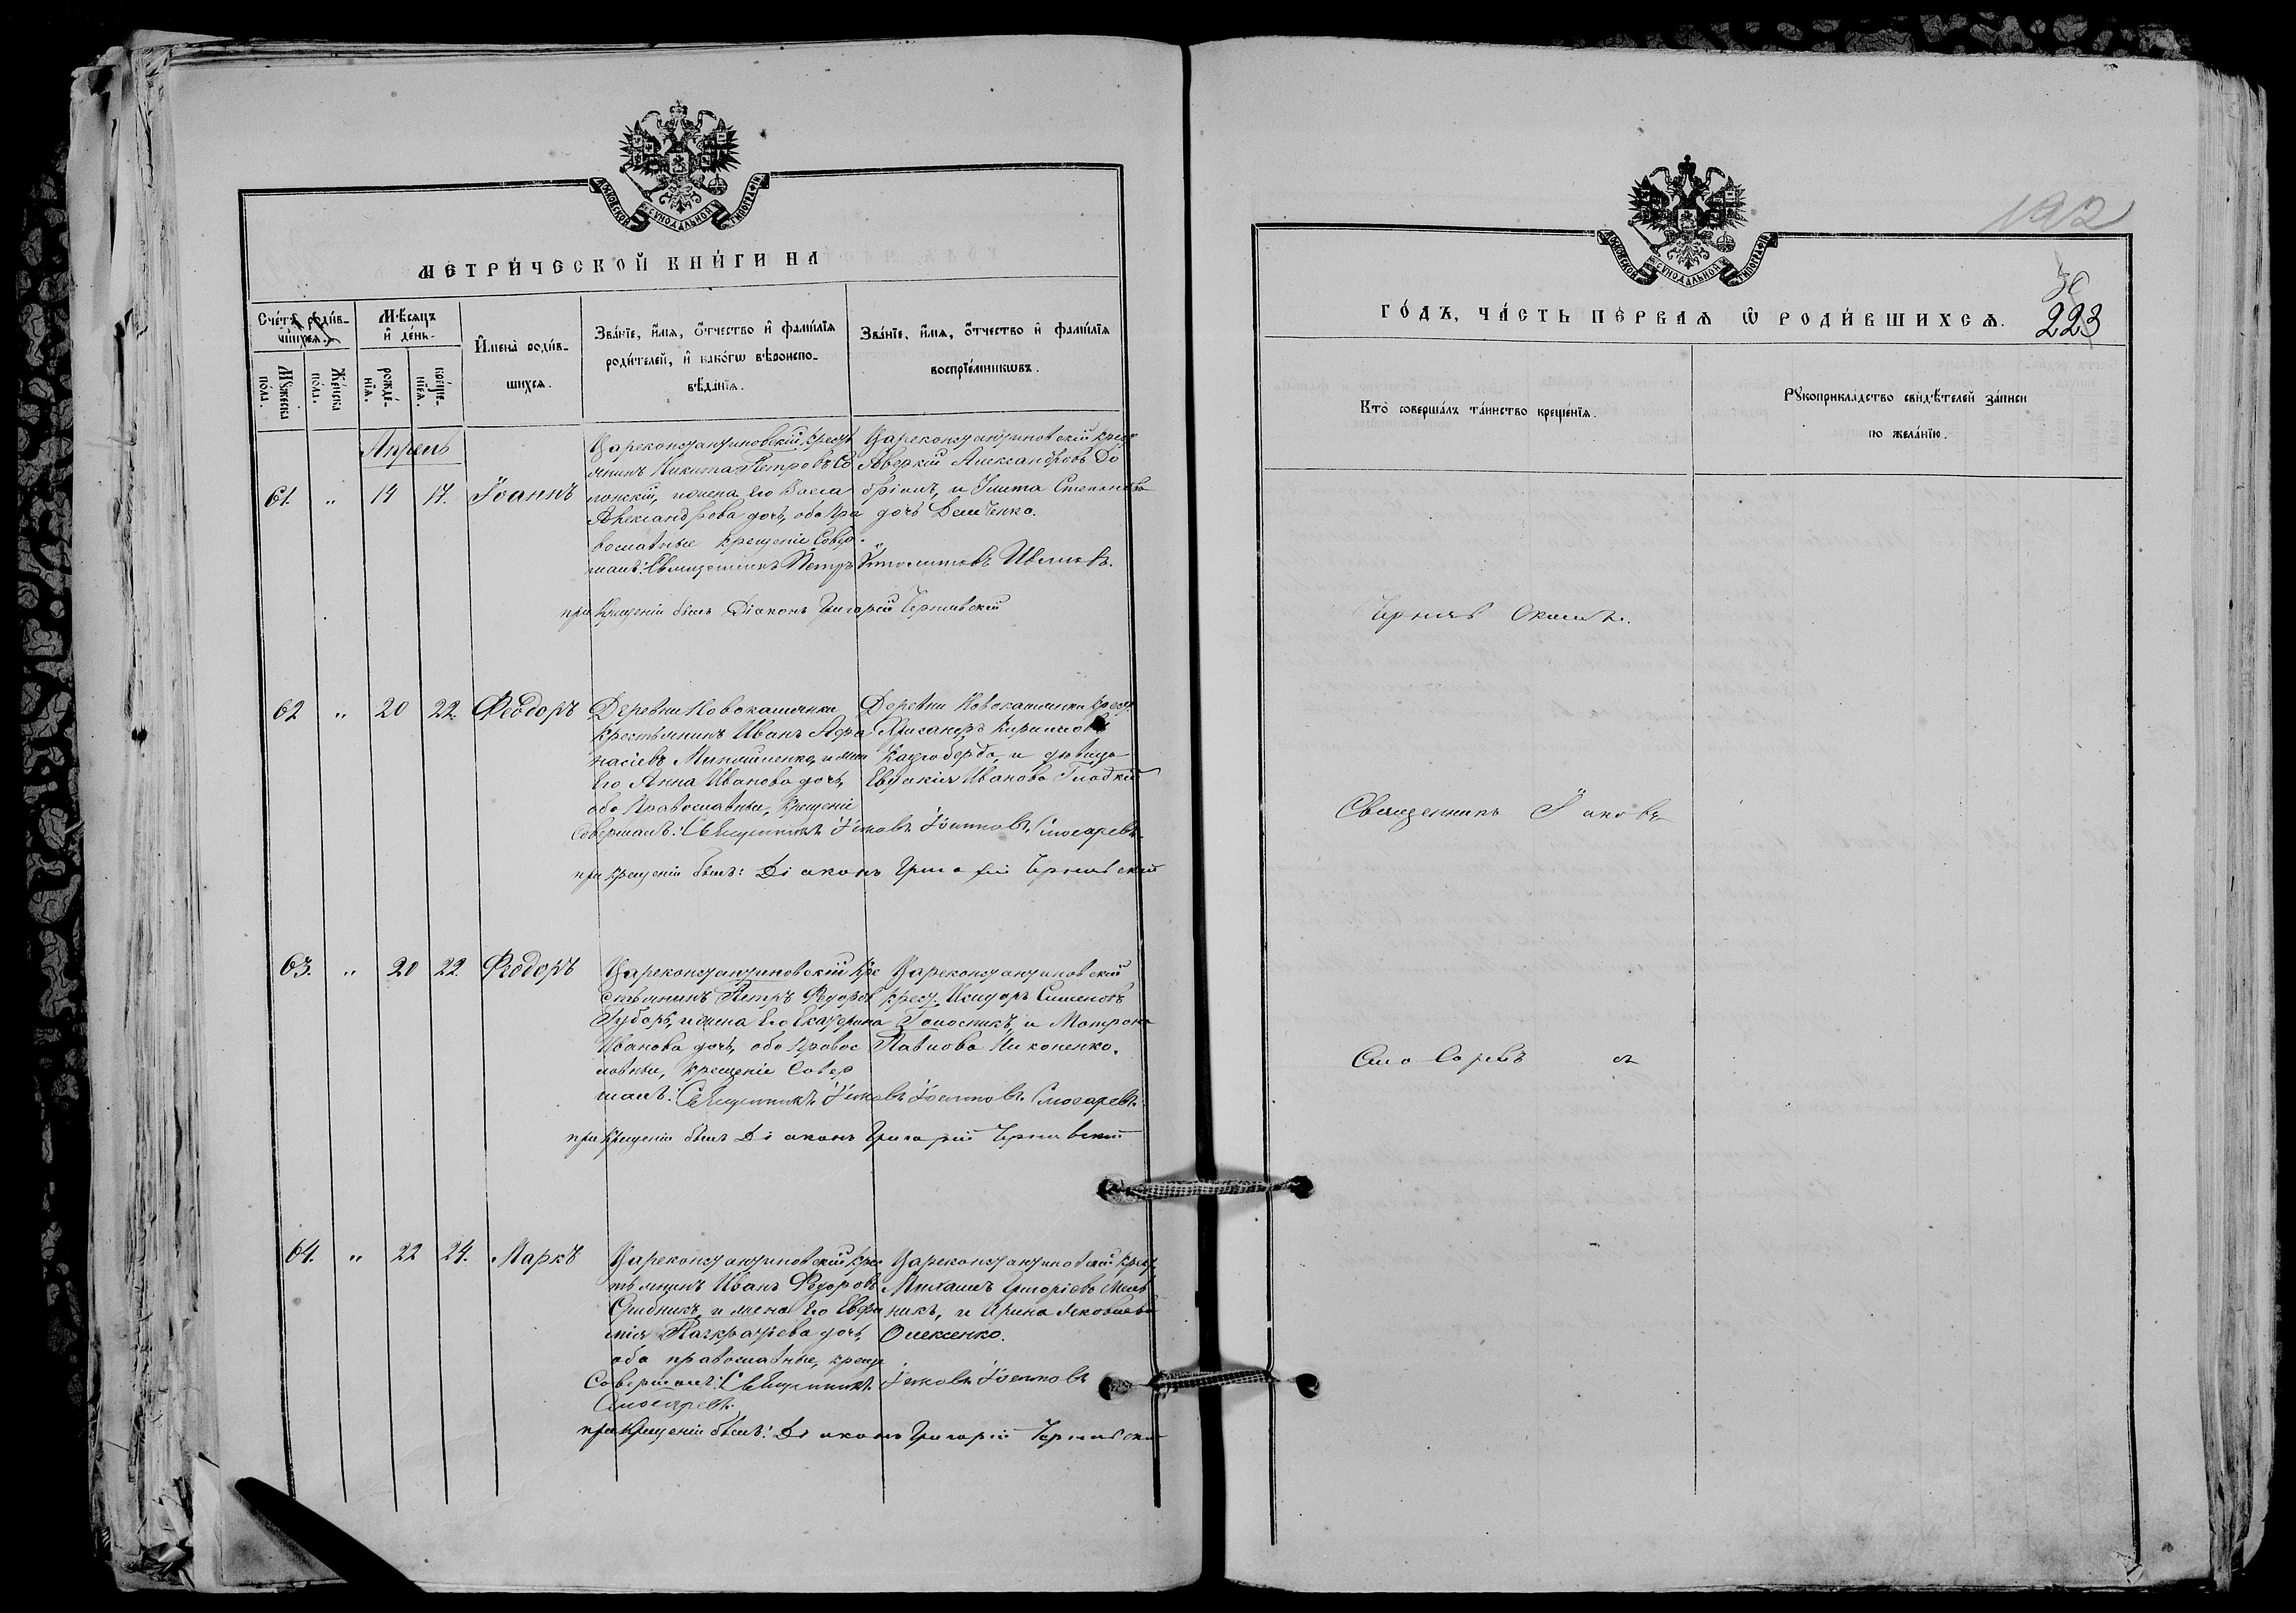 МОСКОВСКОЙ СѴНОДАЛЬНОЙ ТИПОГРАФІИ
МЕТРИ́ЧЕСКОЙ КНИ́ГИ НА
Сче́тъ роди́вшихся.
Мѣ́сяцъ и҆ де́нь.
И҆мена̀ роди́вшихся.
Зва́нїе, и҆́мя, ѻ҆́тчество и҆ фами́лїя
роди́телей, и҆ како́гѡ вѣроиспо-
вѣ́данїя.
Зва́нїе, и҆́мя, ѻ҆́тчество и҆ фами́лїя
воспрїе́мникѡвъ.
Мꙋ́жеска по́ла.
Же́нска по́ла.
рожде́-нїя.
креще́-нїя.
Апрель
61. " 14 17. Іоаннъ
Цареконстантиновскій крест
янинъ Никита Петровъ Со
лонскій, и жена его Васса
Александрова дочь, оба пра
вославные крещеніе совер
шалъ: Священникъ Петръ
Цареконстантиновскій крест
Аверкій Александровъ
и Улита Степанова
дочь Демченко.
при крещеніи былъ Діаконъ Григорій Чернявскій
62 " 20 22. Ѳеодоръ
Деревни Новокаменки
крестьянинъ Иванъ Афа
насіевъ и жена
его Анна Иванова дочь,
оба православные, крещеніе
совершалъ: Священникъ Іаковъ Іоанновъ Слюсаревъ
Деревни Новокаменки крест
Александръ Кириловъ
Кацюберда, и девица
Евдокія Иванова Гладкій
при крещеніи былъ: Діаконъ Григорій Чернявскій
63. " 20 22. Ѳеодоръ
Цареконстантиновскій кре
стьянинъ Петръ Федоров
Губарь, и жена его Екатерина
Иванова дочь, оба правос
лавные, крещеніе совер
шалъ: Священникъ Іаковъ Іоанновъ Слюсаревъ
Цареконстантиновскій
крест. Исидоръ Сименовъ
Голосникъ, и Матрона
Павлова Никоненко.
при крещеніи былъ Діаконъ Григорій Чернявскій
64. " 22 24. Маркъ
Цареконстантиновскій крес
тьянинъ Иванъ Федоровъ
и жена его Евфи
мія Панкратіева дочь,
оба православные, крещ
совершалъ: Священникъ Іаковъ Іоанновъ
Слюсаревъ
Цареконстантиновскій крест,
Михаилъ Григоріевъ Мель
никъ, и Ирина Яковлева
Олексенко.
при крещеніи былъ: Діаконъ Григорій Чернявскій
192
МОСКОВСКОЙ СѴНОДАЛЬНОЙ ТИПОГРАФІИ
ГО́ДЪ, ЧА́СТЬ ПЕ́РВАЯ Ѡ РОДИ́ВШИХСЯ.
223
Кто̀ соверша́лъ та́инство креще́нїя.
Рꙋкоприкла́дство свидѣ́телей за́писи
по жела́нїю.
Священникъ Іаковъ
Слюсаревъ